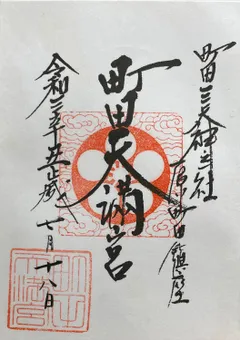 町田三天神之社
原町田鎮座
町田天満宮
令和三年五正歳
七月十八日